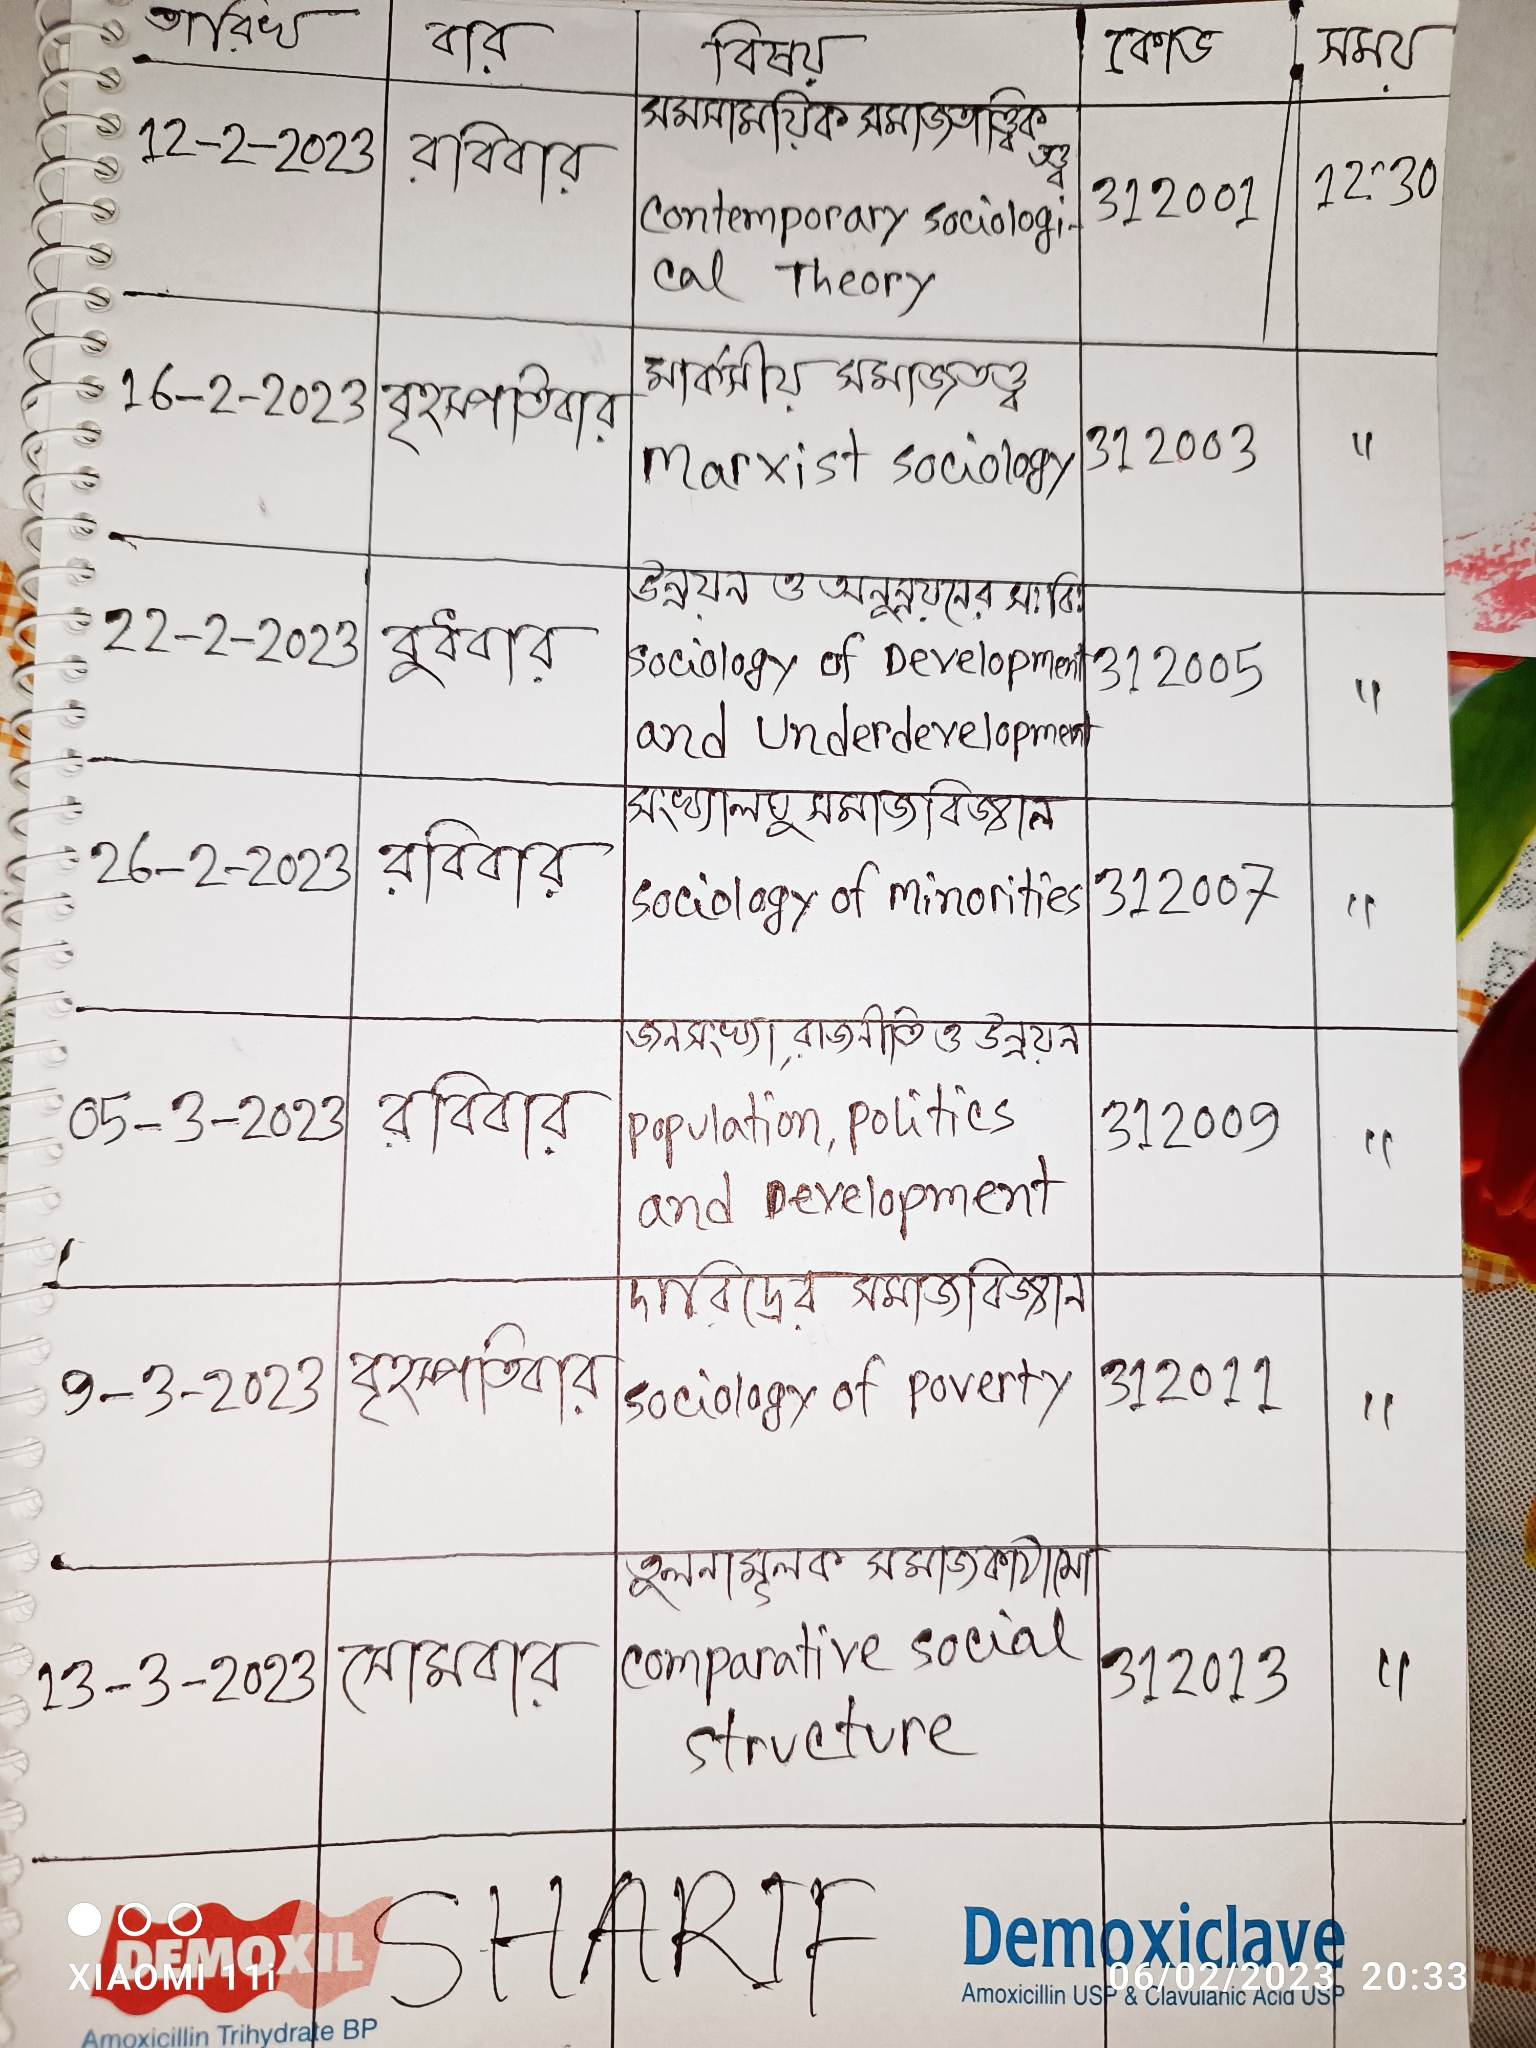 তারিখ বার বিষয় কোড সময়
12-2-2023 রবিবার সমসাময়িক সমাজতাত্ত্বিক তত্ত্ব 312001 12:30
Contemporary sociologi-
cal Theory
16-2-2023 বৃহসপতিবার মার্কসীয় সমাজতত্ত্ব 312003 "
Marxist sociology
22-2-2023 বুধবার উন্নয়ন ও অনুন্নয়নের সঃবিঃ 312005 "
sociology of Development
and Underdevelopment
26-2-2023 রবিবার সংখ্যালঘু সমাজবিজ্ঞান 312007 "
sociology of minorities
05-3-2023 রবিবার জনসংখ্যা, রাজনীতি ও উন্নয়ন 312009 "
population, politics
and Development
9-3-2023 বৃহস্পতিবার দারিদ্রের সমাজবিজ্ঞান 312011 "
sociology of poverty
13-3-2023 সোমবার তুলনামূলক সমাজকাঠামো 312013 "
comparative social
structure
SHARIF
DEMOXIL
Amoxicillin Trihydrate BP
Demoxiclave
Amoxicillin USP & Clavulanic Acid USP
XIAOMI 11i
06/02/2023 20:33